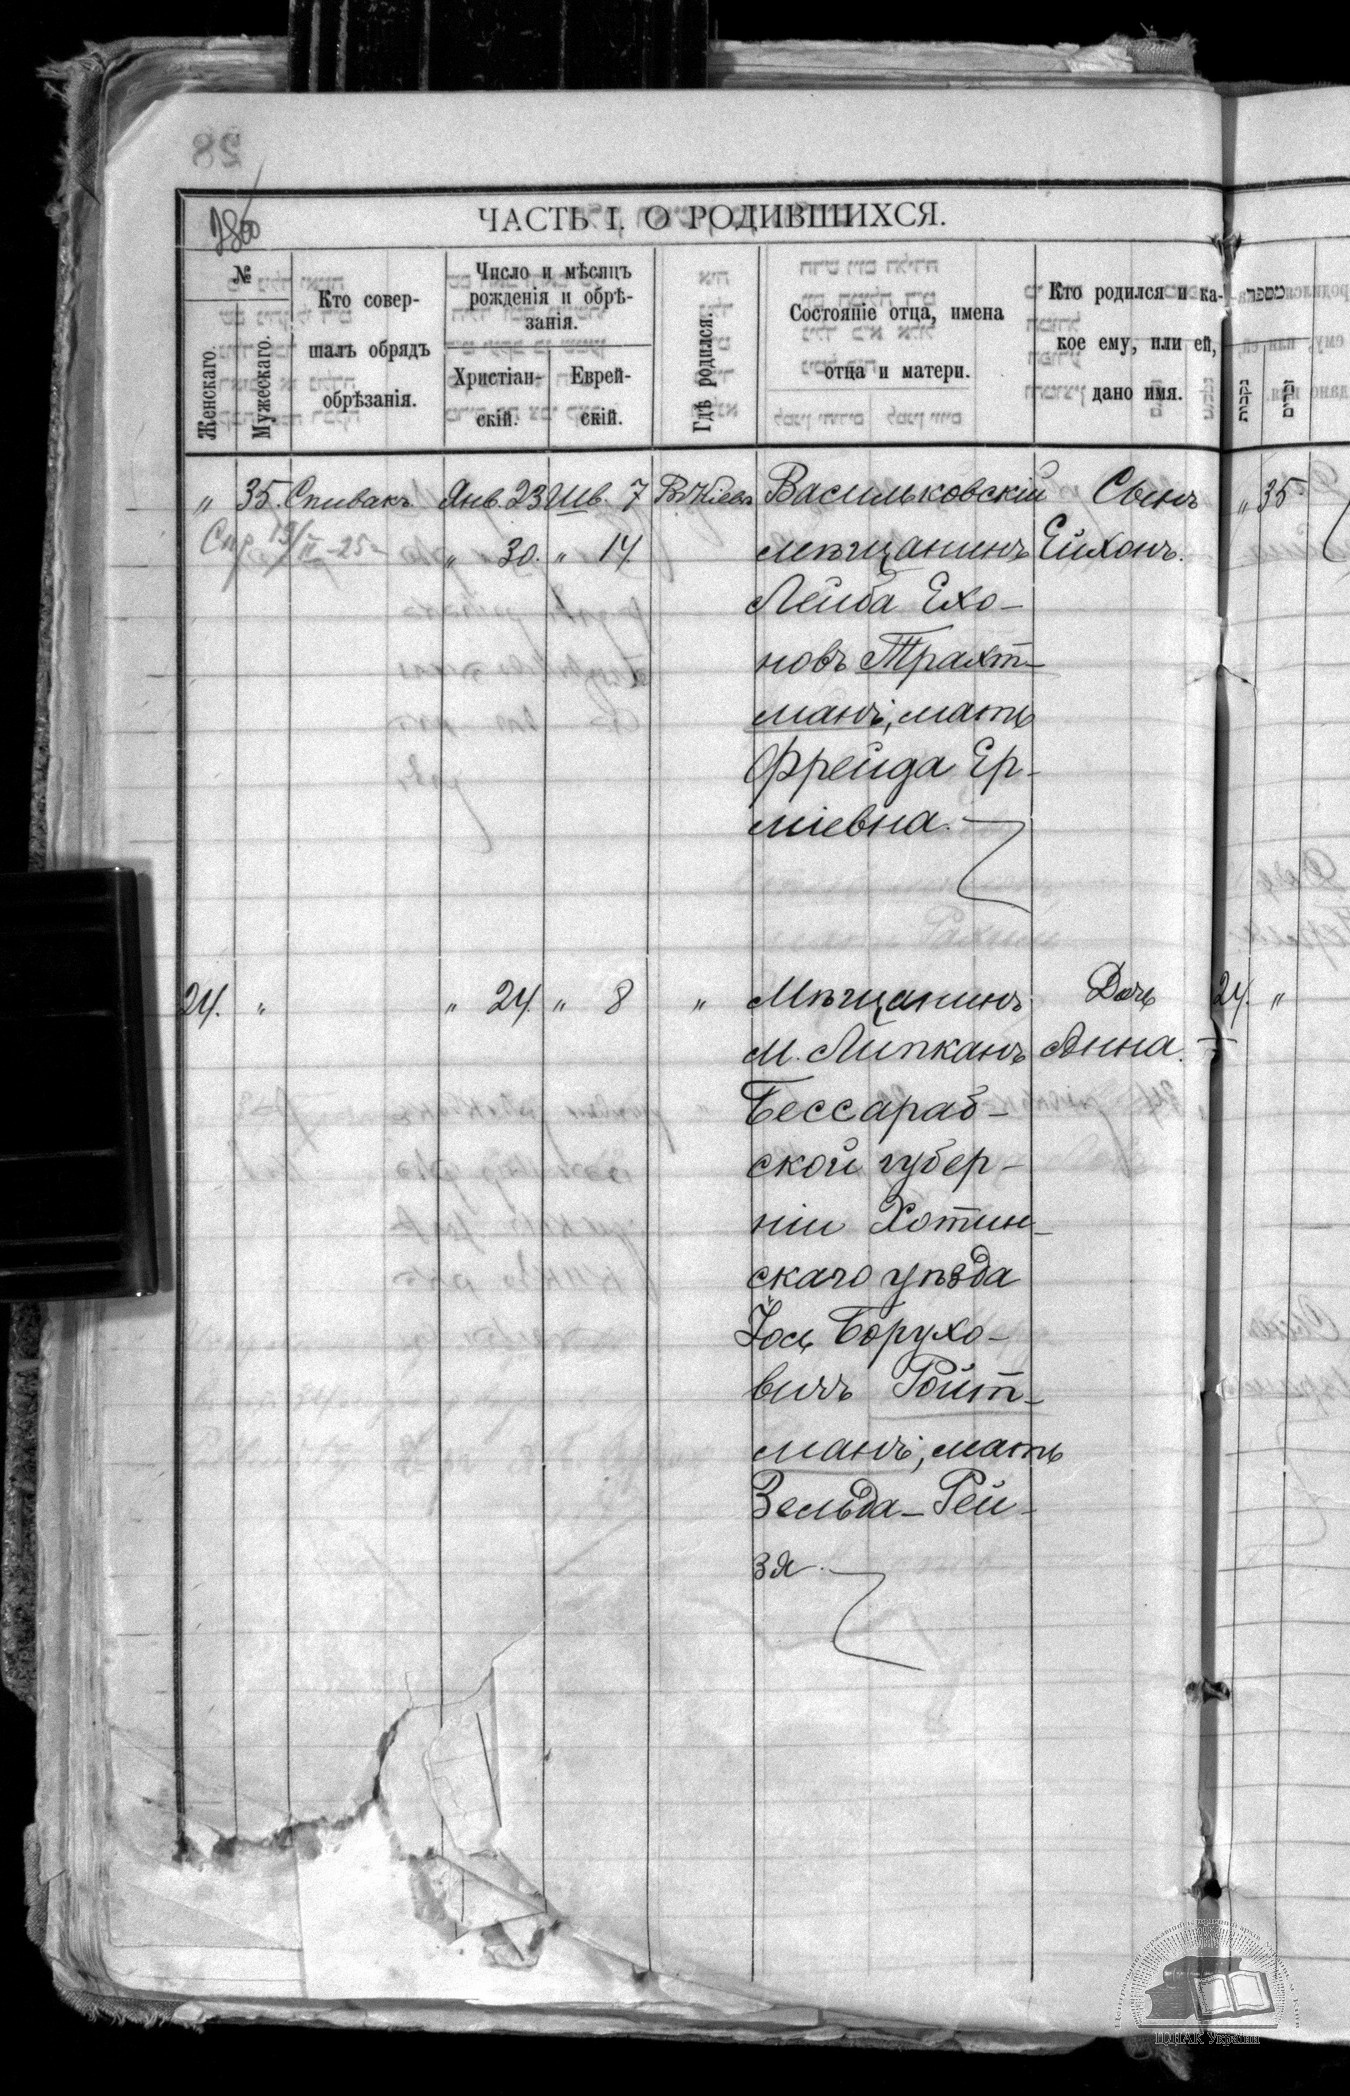 ЧАСТЬ I. О РОДИВШИХСЯ.
№
Женскаго.
Мужескаго.
Кто совер-
шалъ обрядъ
обрѣзанія.
Число и мѣсяцъ
рожденія и обрѣ-
занія.
Христіан-
скій.
Еврей-
скій.
Гдѣ родился.
Состояніе отца, имена
отца и матери.
Кто родился и ка-
кое ему, или ей,
дано имя.
„ 35. Спивакъ. Янв. 23 Шв. 7 Въ Кіевѣ Васильковскій Сынъ „ 35
„ 30. „ 14. мѣщанинъ Ейхонъ.
Лейба Ехо-
новъ Трахт-
манъ, мать
Фрейда Ер-
міевна.
24. „ „ 24. „ 8 „ Мѣщанинъ Дочь 24. „
м. Липканъ Анна.
Бессараб-
ской губер-
ніи Хотин-
скаго уѣзда
Іось Борухо-
вичъ Ройт-
манъ, мать
Зельда-Рей-
зя.
ЦДІАК України